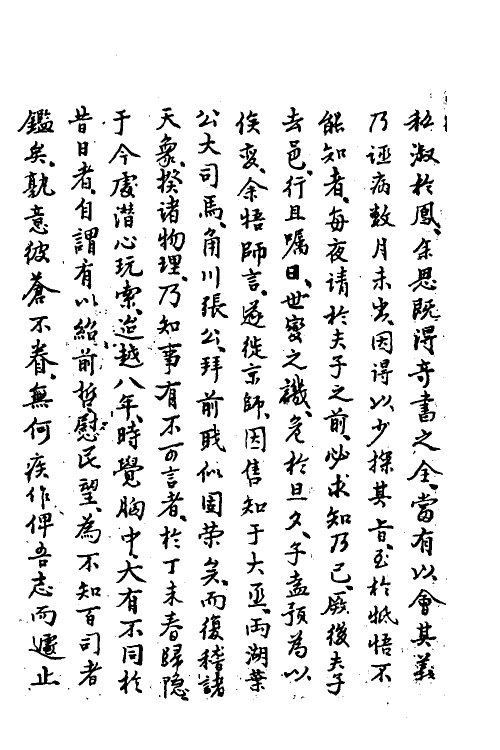 私淑於鳳、余思既得奇書之全、當有以會其義
乃誣病數月未出、因得以少探其旨、至於牴悟不
能知者、每夜请於夫子之前、必求知乃已、厥後夫子
去邑、行且嘱曰、世變之譏、危於旦夕、子盍預為以
俟变、余悟師言、遂從京師、因售知于大巫、両湖葉
公大司馬、甬川張公、拜前职似固荣矣、而復稽諸
天象、揆诸物理、乃知事有不可言者、於丁未春歸隐
于今處潛心玩索、迨越八年、時覺胸中、大有不同於
昔日者、自謂有以紹前哲、慰民望、為不知百司者
鑑矣、孰意彼蒼不眷、無何疾作俾吾志而遽止